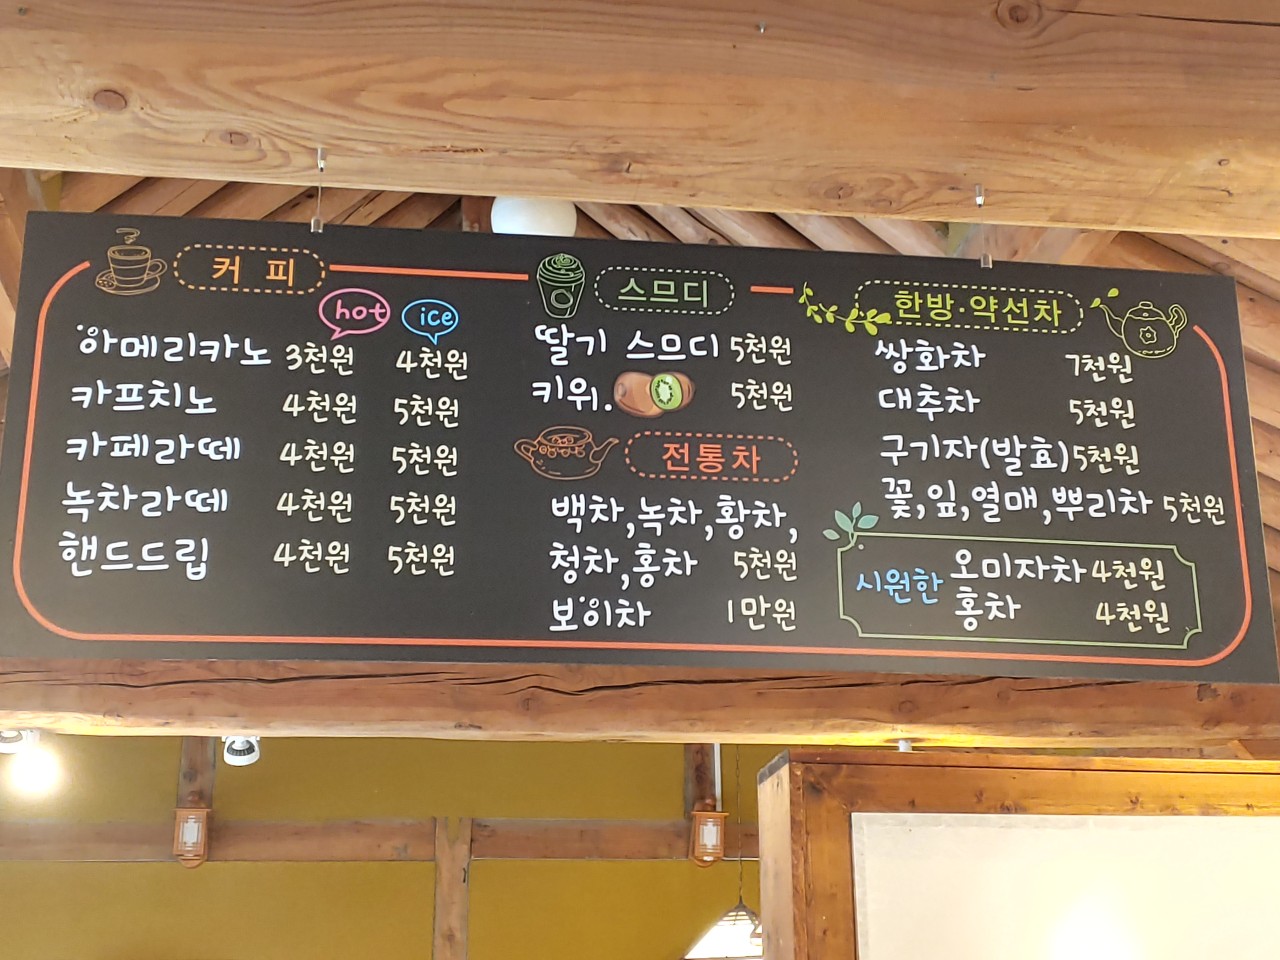 커 피
hot ice
아메리카노 3천원 4천원
카프치노 4천원 5천원
카페라떼 4천원 5천원
녹차라떼 4천원 5천원
핸드드립 4천원 5천원
스므디
딸기 스므디 5천원
키위. 5천원
전통차
백차,녹차,황차,
청차,홍차 5천원
보이차 1만원
한방·약선차
쌍화차 7천원
대추차 5천원
구기자(발효) 5천원
꽃,잎,열매,뿌리차 5천원
시원한 오미자차 4천원
홍차 4천원